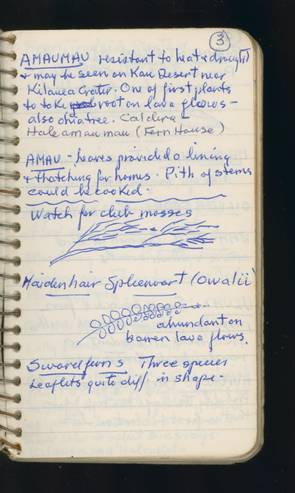 3
AMAUMAU resistant to heat & drought
& may be seen on Kau Desert near
Kilauea Crater. One of first plants
to take root on lava flows -
also ohia tree. Caldera -
Halemaumau (Fern House)
AMAU - leaves provided a lining
& thatching for homes. Pith of stems
could be cooked.
Watch for club mosses
Maidenhair Spleenwort (Owalii)
abundant on
barren lava flows.
Swordferns Three species
Leaflets quite diff in shape -